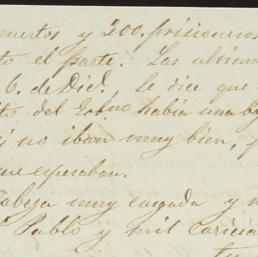 muertos y 200. prisioneros
to el parte. Las ultimas
6. de Dic.e, Se dice que
ito del Gob.no habia una ba
i no iban muy bien, p
que esperaban.
Cabeza muy cargada y n
Pablo y mil caricia